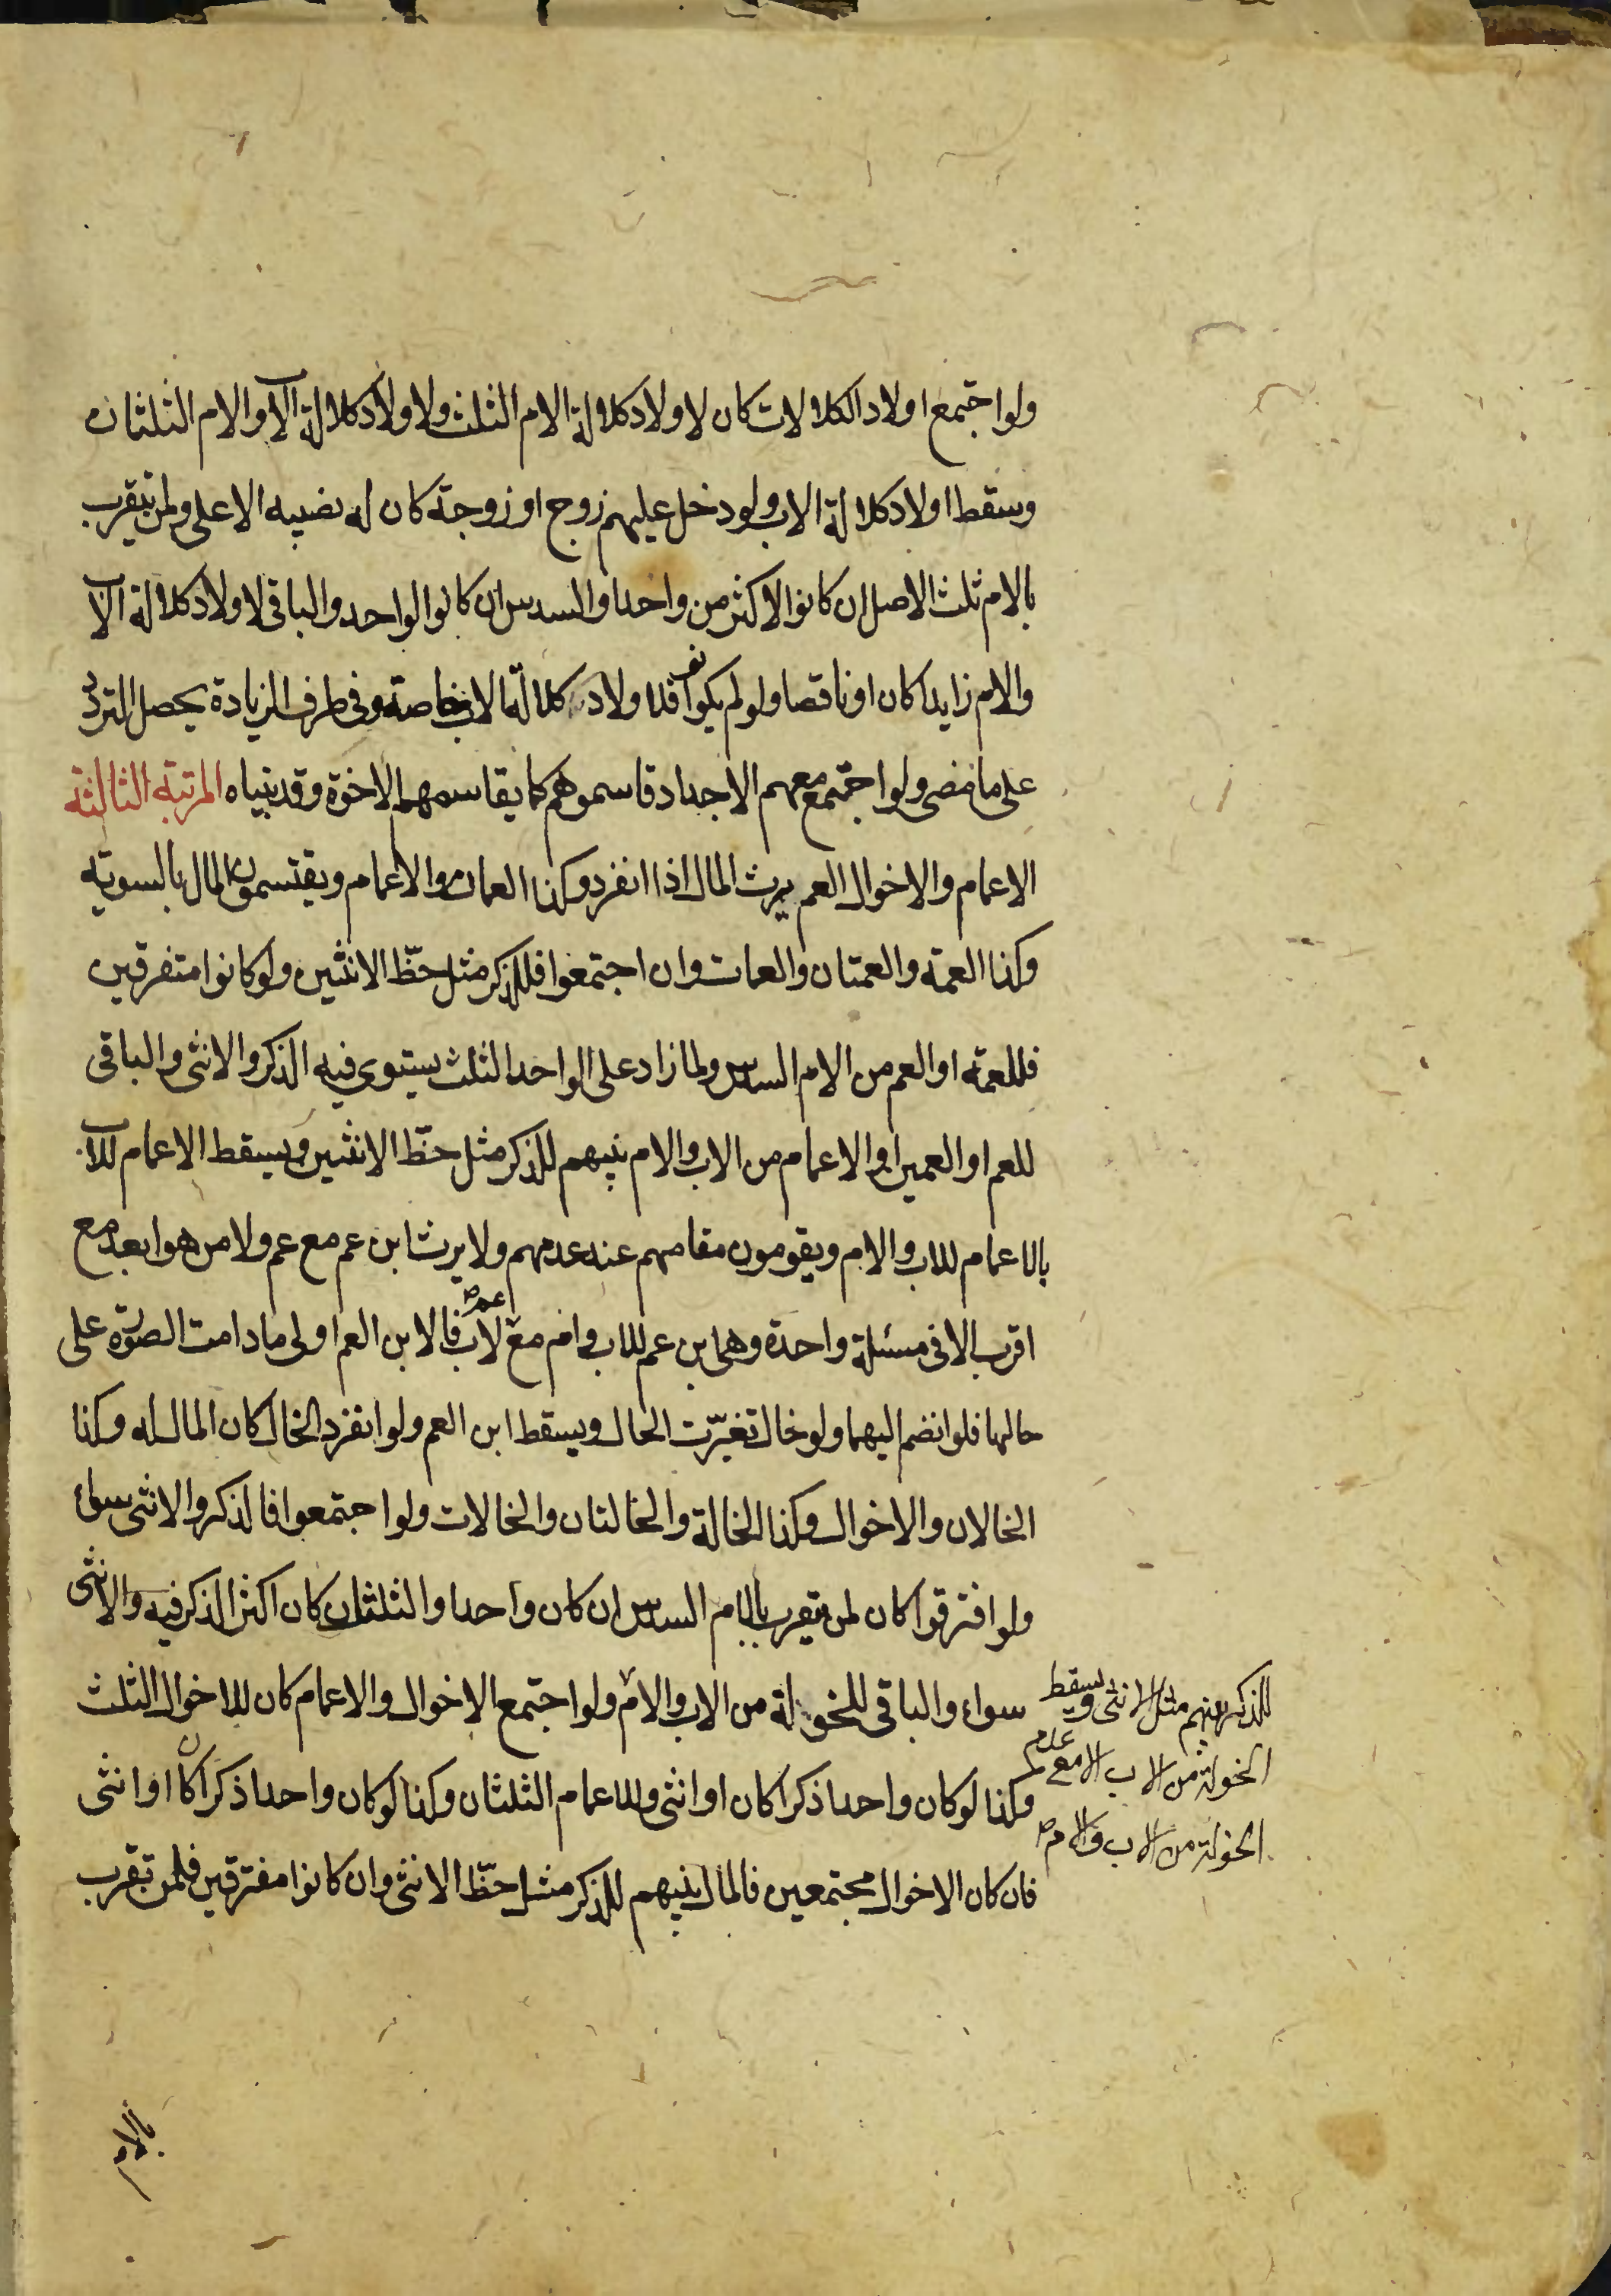 ولو اجتمع اولاد الكلالات كان لاولاد كلالة الام الثلث ولاولاد كلالة الاب والام الثلثان
وسقط اولاد كلالة الاب ولو دخل عليهم زوج او زوجة كان له نصيبه الاعلى ولمن تيقرب
بالام ثلث الاصل ان كانوا لاكثر من واحد او السدس ان كانوا الواحد والباقى لاولاد كلالة الاب
والام زايدا كان او ناقصا ولو لم يكونوا فلاولاد كلالة الاب خاصة وفى طرف الزيادة يحصل التردد
على ما مضى ولو اجتمع معهم الاجداد قاسموهم كما يقاسمهم الاخوة وقد بيناه المرتبة الثالثة
الاعمام والاخوال العم يرث المال اذا انفرد وكذا العمان والاعمام ويقتسمون المال بالسويه
وكذا العمة والعمتان والعمات وان اجتمعوا فللذكر مثل حظّ الانثيين ولو كانوا متفرقين
فللعمة او العم من الام السدس ولما زاد على الواحد الثلث يستوى فيه الذكر والانثى والباقى
للعم او العمين او الاعمام من الاب والام بينهم للذكر مثل حظّ الانثيين ويسقط الاعمام للاب
بالاعمام للاب والام ويقومون مقامهم عند عدمهم ولا يرث ابن عم مع عم ولا من هو ابعد مع
اقرب الا فى مسئلة واحدة وهى ابن عم للاب وام مع عم لاب فالابن العم اولى ما دامت الصورة على
حالها فلو انضم اليهما ولو خال تغيّرت الحال ويسقط ابن العم ولو انفرد الخال كان المال له وكذا
الخالان والاخوال وكذا الخالة والخالتان والخالات ولو اجتمعوا فالذكر والانثى سواء
ولو افترقوا كان لمن يتقرب بالام السدس ان كان واحدا والثلث ان كان اكثر الذكر فيه والانثى
سواء والباقى للخولة من الاب والام ولو اجتمع الاخوال والاعمام كان للاخوال الثلث
وكذا لو كان واحدا ذكرا كان او انثى وللاعمام الثلثان وكذا لو كان واحدا ذكرا كان او انثى
فان كان الاخوال مجتمعين فالمال بينهم للذكر مثل حظّ الانثى وان كانوا مفترقين فلمن تقرب
للذكر منهم مثل الانثى ويسقط
الخولة من الاب الا مع عدم
الخولة من الاب والام صح
بالام